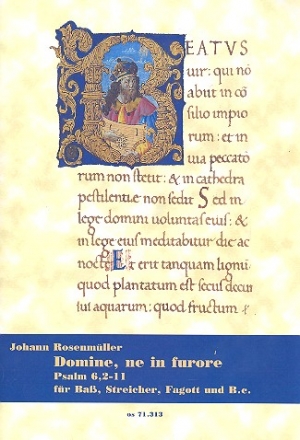 BEATVS
uir: qui nō
abut in cō
silio impio
rum: et in
uia peccatō
rum non stetit: & in cathedra
pestilentiæ non sedit Sed in
lege domini uoluntas eius: &
in lege eius meditabitur die ac
nocte Et erit tanquam lignū
quod plantatum est secus decur
sus aquarum: quod fructum
Johann Rosenmüller
Domine, ne in furore
Psalm 6,2-11
für Baß, Streicher, Fagott und B.c.
os 71.313